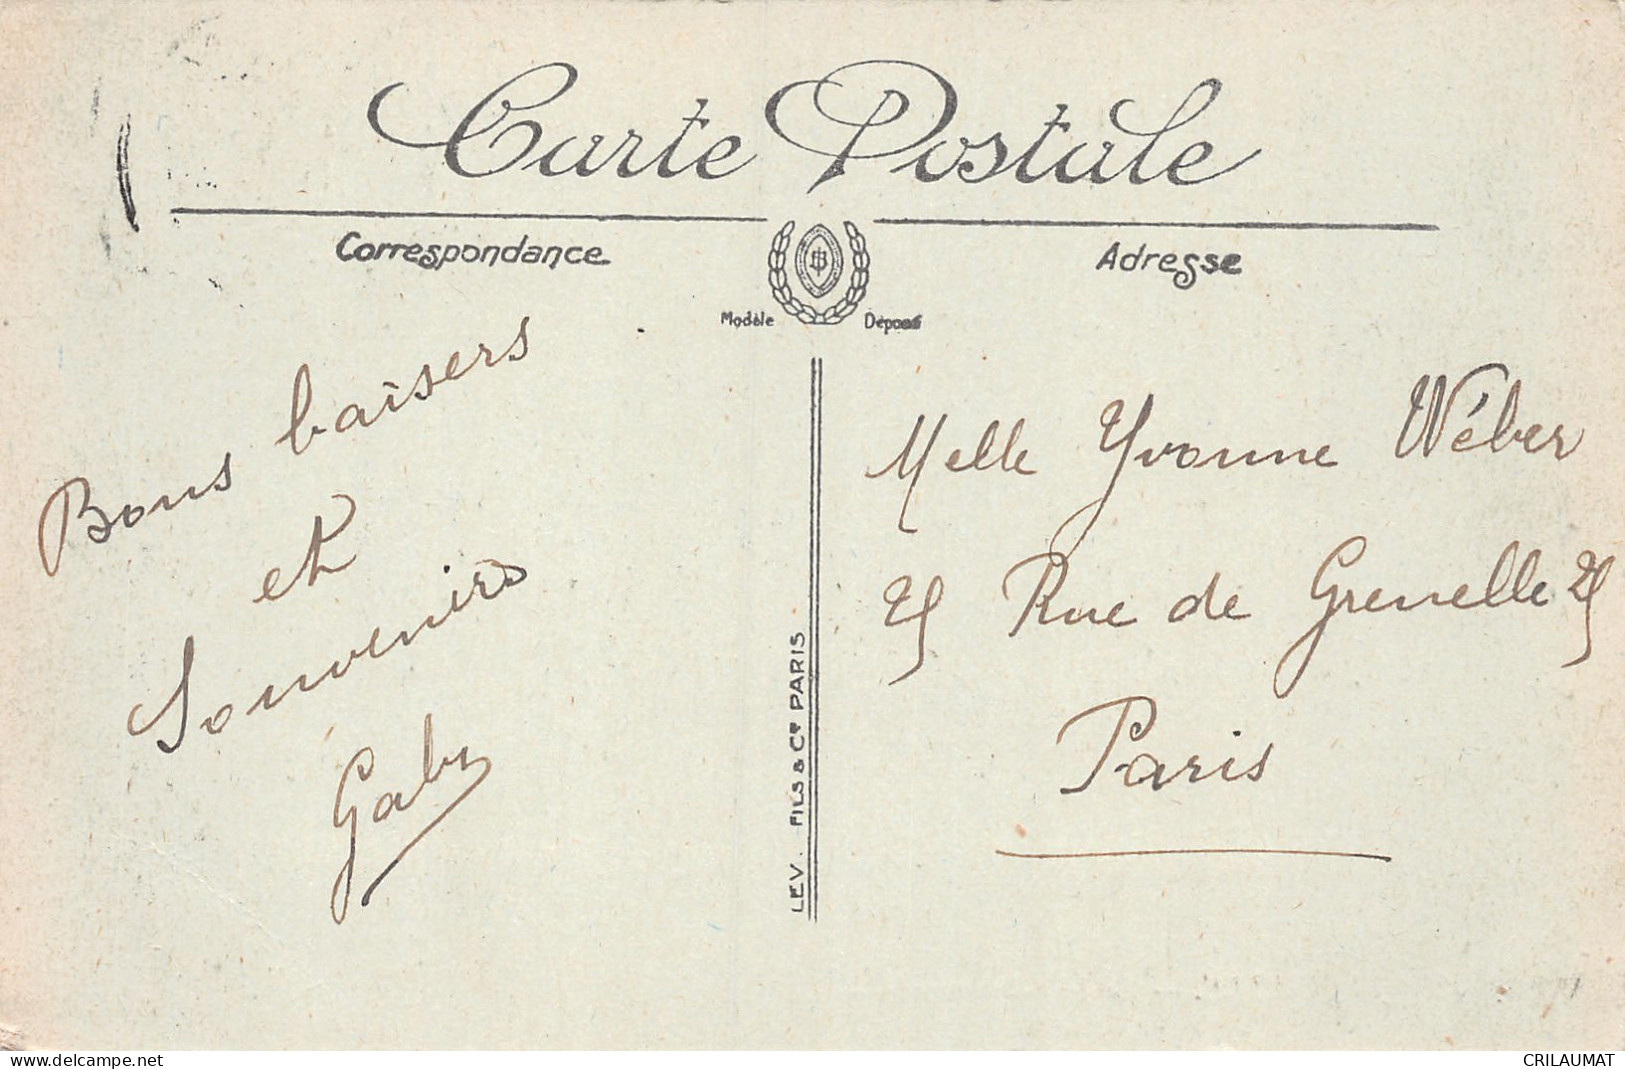 Carte Postale
Correspondance
Adresse
Modèle Déposé
Bons baisers
et
Souvenirs
Gaby
LEV. FILS & Cie PARIS
Melle Yvonne Wéber
25 Rue de Grenelle 25
Paris
www.delcampe.net
CRILAUMAT